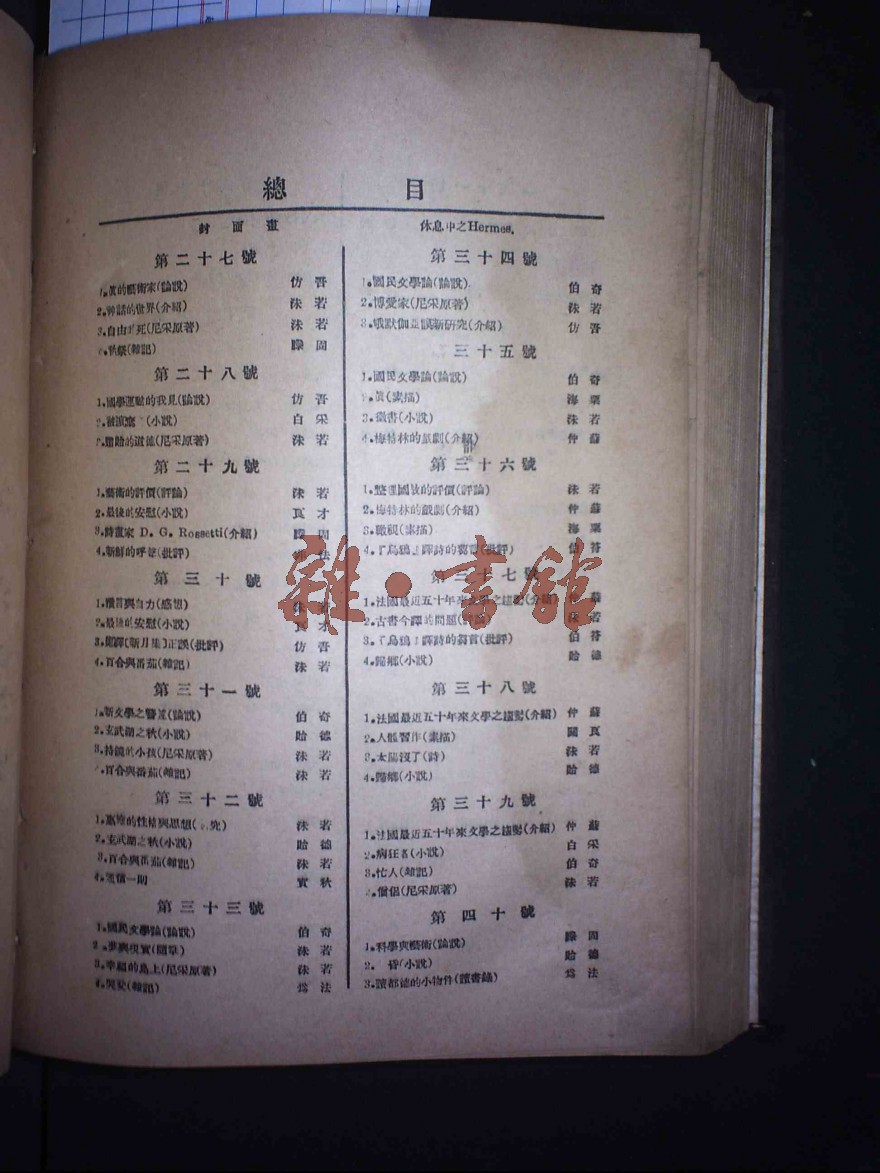 總 目
封面畫 休息中之Hermes.
第二十七號
1.眞的藝術家(論說) 仿吾
2.神話的世界(介紹) 沫若
3.自由 死(尼采原著) 沫若
(雜記)
第二十八號
1.國學運動的我見(論說) 仿吾
(小說) 白采
的道德(尼采原著) 沫若
第二十九號
1.藝術的評價(評論) 沫若
2.最後的安慰(小說)
3.詩畫家 D. G. Rossetti(介紹)
4.新鮮的呼 (批評)
第三十號
自力(感想)
2.最後的安慰(小說)
3. 譯[新月集]正誤(批評) 仿吾
4.百合與番茄(雜記) 沫若
第三十一號
1.新文學之警 (論說) 伯奇
2.玄武湖之秋(小說) 哈德
3.持鏡的小孩(尼采原著) 沫若
百合與番茄(雜記) 沫若
第三十二號
1. 的性格與思想( 究) 沫若
2.玄武湖之秋(小說) 哈德
3.百合與番茄(雜記) 沫若
4.通信一則 實秋
第三十三號
1.國民文學論(論說) 伯奇
2.夢與現實(隨草) 沫若
3.幸福的島上(尼采原著) 沫若
(雜記) 爲法
第三十四號
1.國民文學論(論說) 伯奇
2.博愛家(尼采原著) 沫若
3.莪默伽亞謨新研究(介紹) 仿吾
三十五號
1.國民文學論(論說) 伯奇
眞(素描) 海粟
書(小說) 沫若
4.梅特林的戲劇(介紹) 仲蘇
第三十六號
1.整理國故的評價(評論) 沫若
2.梅特林的戲劇(介紹) 仲蘇
3. 視(素描) 海粟
4.『烏鴉』譯詩的芻言(批評) 伯符
第三十七號
1.法國最近五十年來文學之趨勢(介紹) 蘇
2.古書今譯的問題 沫若
3.『烏鴉』譯詩的芻言(批評) 伯符
4.歸鄉(小說) 哈德
第三十八號
1.法國最近五十年來文學之趨勢(介紹) 仲蘇
2.人體習作(素描)
3.太陽沒了(詩) 沫若
4.歸鄉(小說) 哈德
第三十九號
1.法國最近五十年來文學之趨勢(介紹) 仲蘇
2.病狂者(小說) 白采
3.忙人(雜記) 伯奇
4.僧侶(尼采原著) 沫若
第四十號
1.科學與藝術(論說)
2. 昏(小說) 哈德
3.讀都德的小物件(讀書錄) 爲法
雜·書館